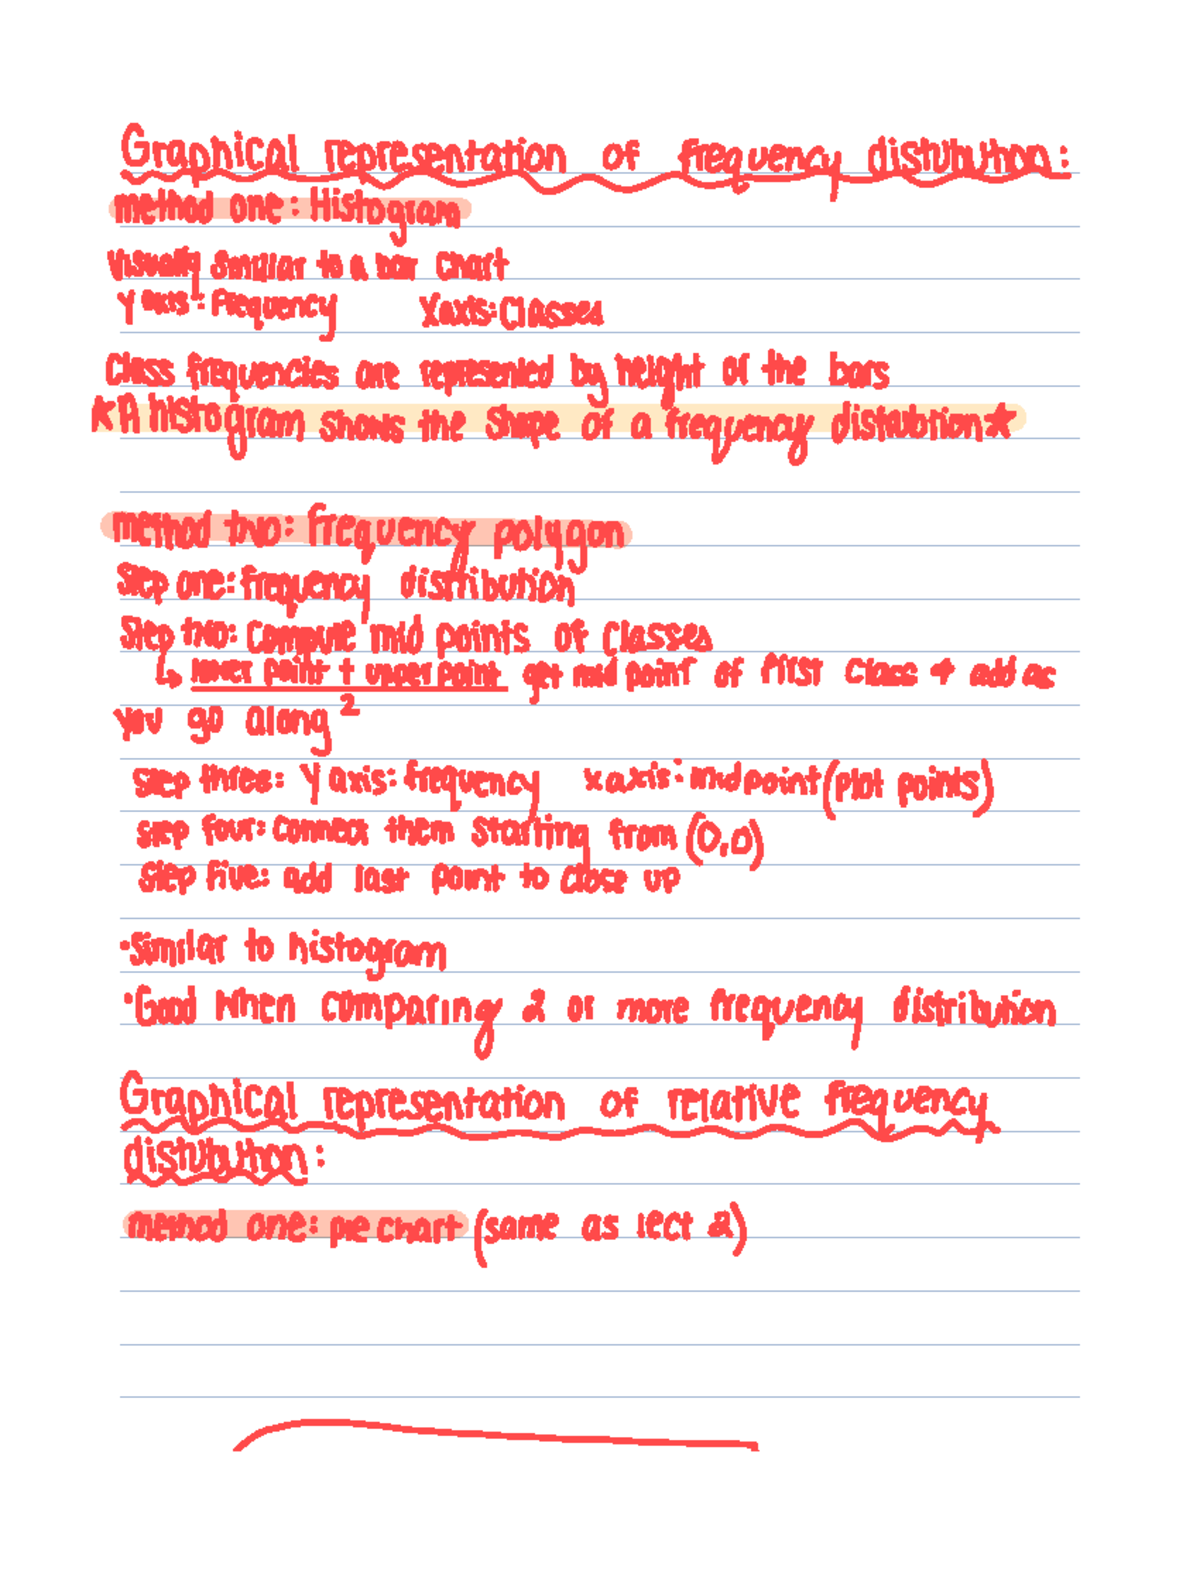 Graphical representation of frequency distubution:
method one: Histogram
Visually similiar to a bar chart
Y axis: frequency X axis: Classes
Class frequencies are represented by height of the bars
★A histogram shows the shape of a frequency distribution★
method two: frequency polygon
Step one: frequency distribution
Step two: Compute mid points of classes
↳ lower point + upper point get mid point of first class + add as
2
you go along
Step three: Y axis: frequency x axis: midpoint (plot points)
Step four: Connect them starting from (0,0)
Step five: add last point to close up
•Similar to histogram
•Good when comparing 2 or more frequency distribution
Graphical representation of relative frequency
distubution:
method one: pie chart (same as lect 2)